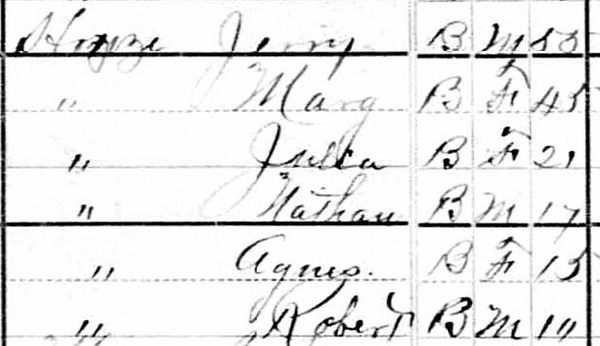 Jerry B M 55
" Mary B F 45
" Julia B F 21
" Nathan B M 17
" Agnes. B F 15
" Robert B M